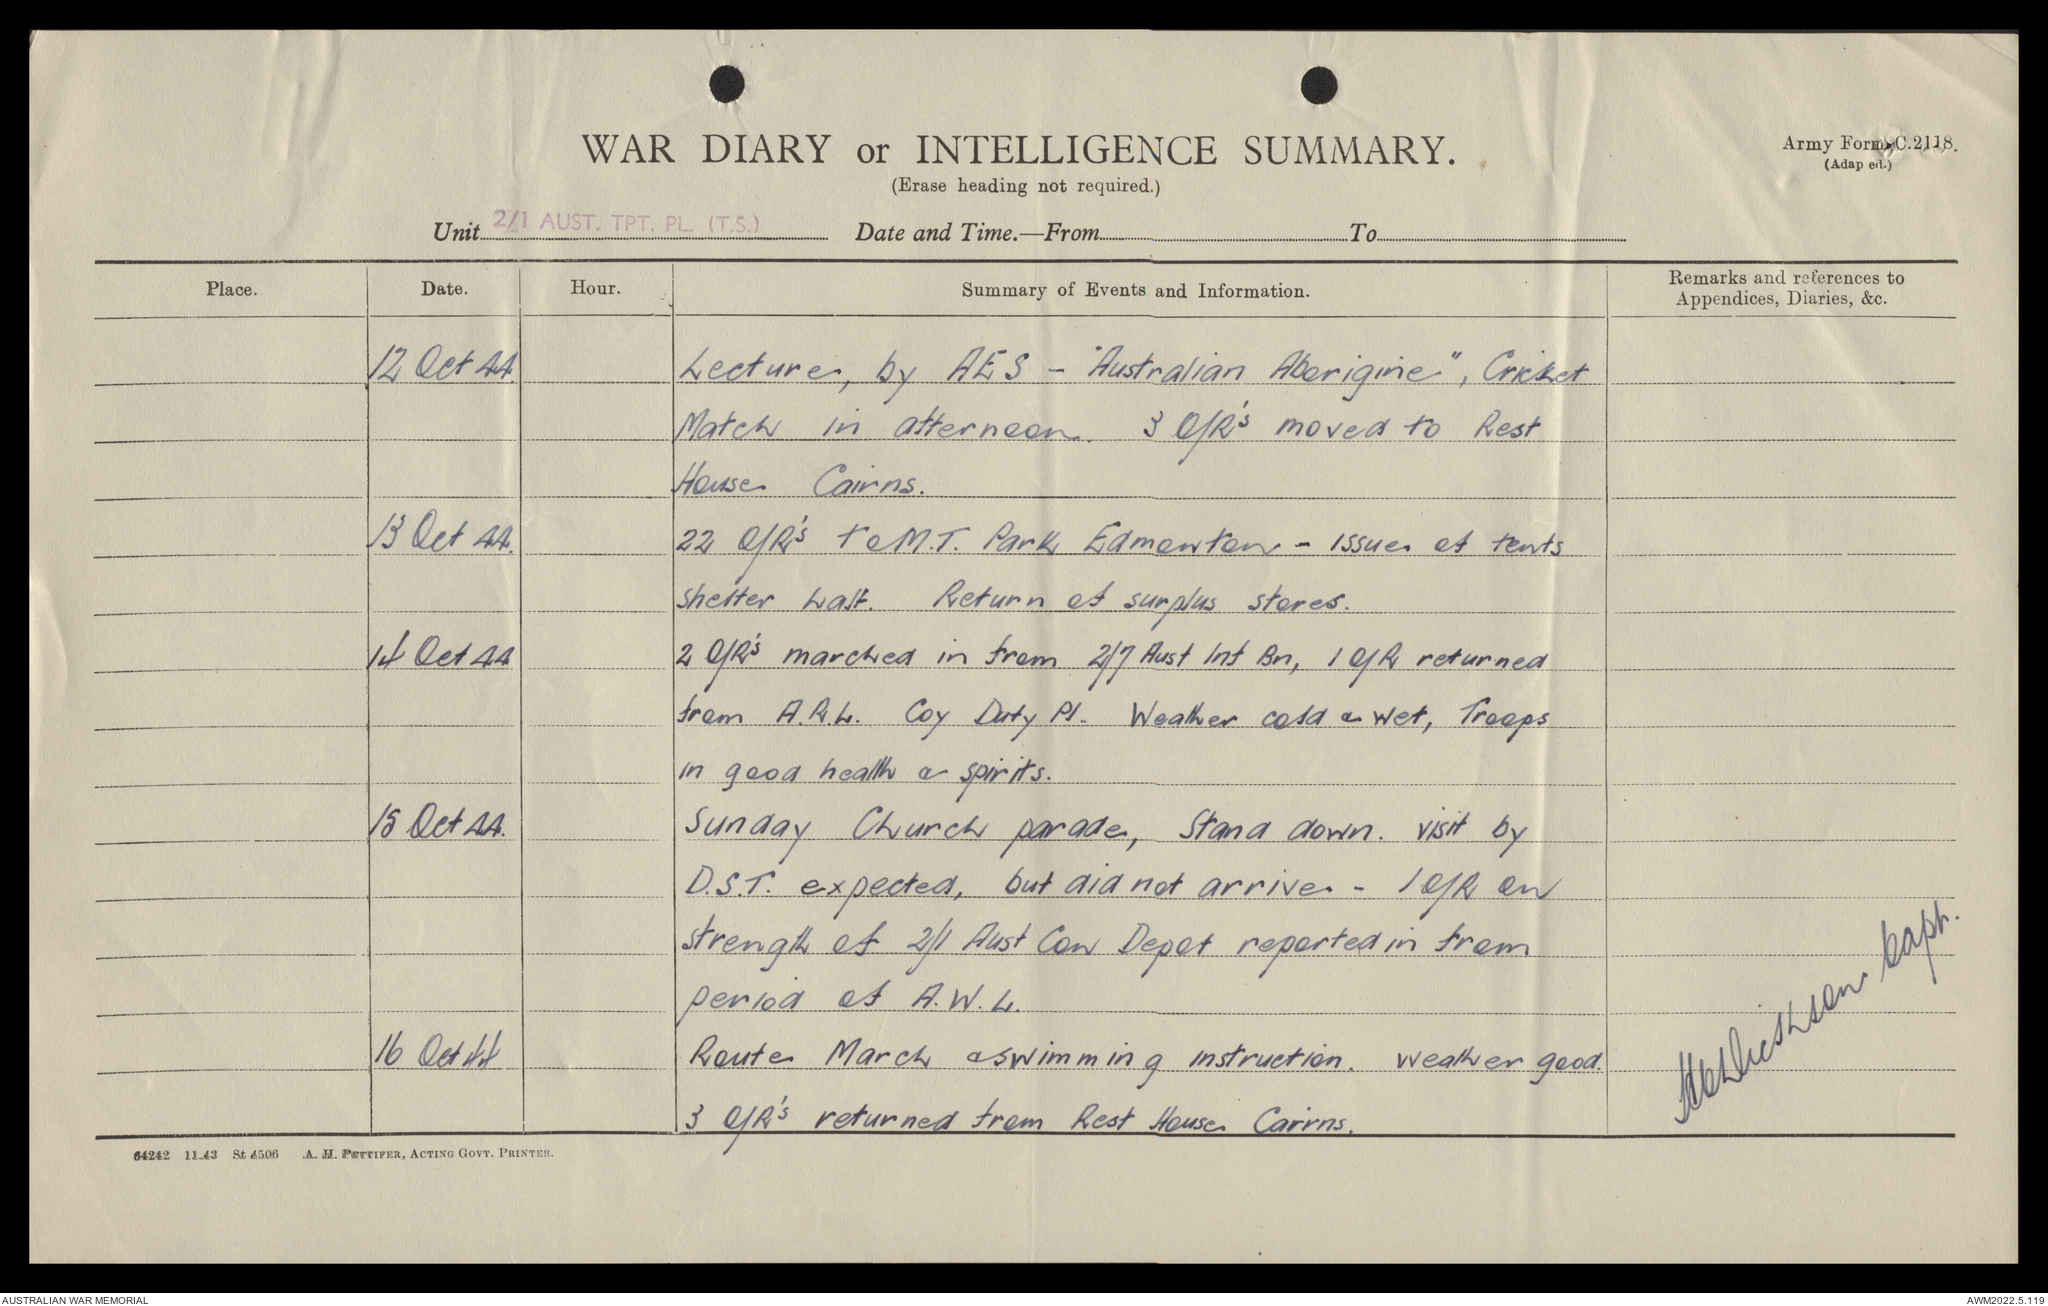 WAR DIARY or INTELLIGENCE SUMMARY.
(Erase heading not required.)
Army Form C.2118.
(Adap ed.)
Unit 2/1 AUST. TPT. PL. (T.S.) Date and Time.—From To
Place. Date. Hour. Summary of Events and Information. Remarks and references to Appendices, Diaries, &c.
12 Oct 44. Lecture, by AES - "Australian Aborigine", Cricket
Match in afternoon. 3 O/R's moved to Rest
House Cairns.
13 Oct 44. 22 O/R's to M.T. Park Edmonton - issue of tents
shelter half. Return of surplus stores.
14 Oct 44 2 O/R's marched in from 2/7 Aust Inf Bn, 1 O/R returned
from A.R.L. Coy Duty Pl. Weather cold & wet, Troops
in good health & spirits.
15 Oct 44. Sunday Church parade, Stand down. visit by
D.S.T. expected, but did not arrive - 1 O/R on
strength of 2/1 Aust Con Depot reported in from
period of A.W.L.
16 Oct 44 Route March & swimming instruction. Weather good.
3 O/R's returned from Rest House Cairns.
Capt.
64242 11.43 St 4506 A. H. PETTIFER, ACTING GOVT. PRINTER.
AUSTRALIAN WAR MEMORIAL
AWM2022.5.119